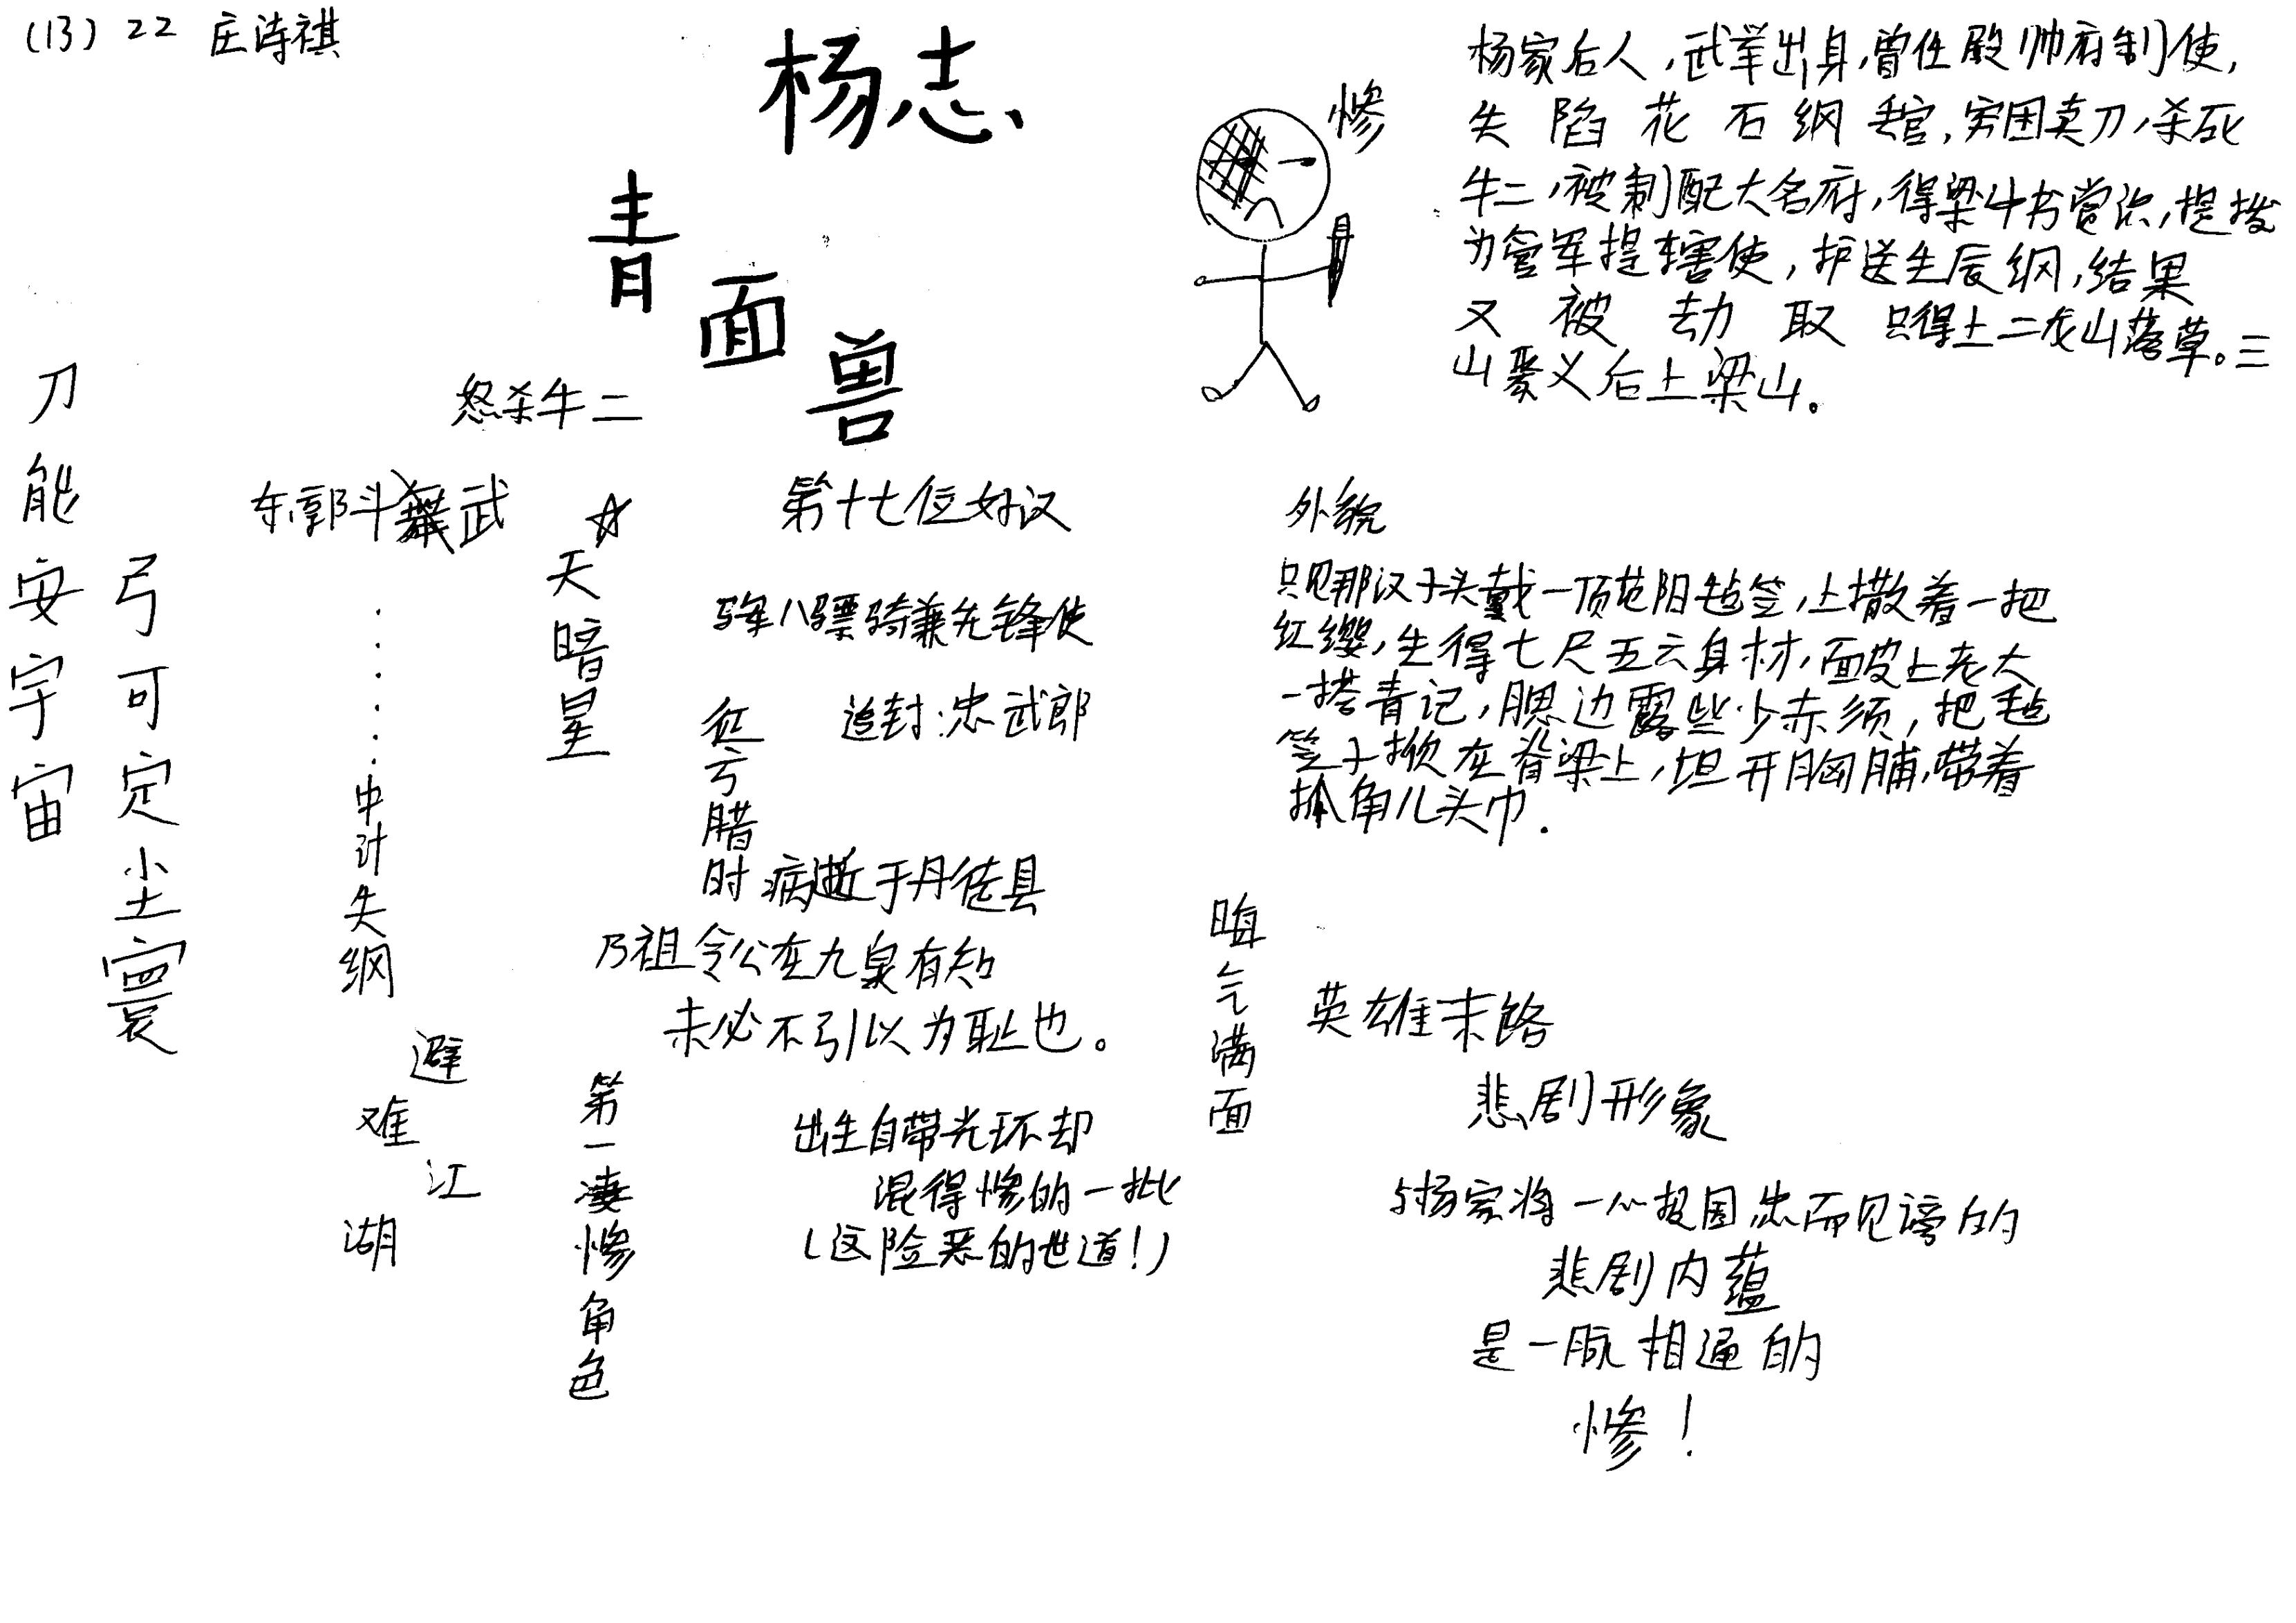 (13) 22 庄诗祺
杨志
青面兽
惨
杨家后人,武举出身,曾任殿帅府制使,
失陷花石纲丢官,穷困卖刀,杀死
牛二,被刺配大名府,得梁中书赏识,提拨
为管军提辖使,护送生辰纲,结果
又被劫取 只得上二龙山落草。三
山聚义后上梁山。
刀能安宇宙
弓可定尘寰
怒杀牛二
东郭斗武
……中计失纲
避难江湖
☆
天暗星
第十七位好汉
军八骠骑兼先锋使
追封:忠武郎
征亏腊
时病逝于丹徒县
乃祖令公在九泉有知
未必不引以为耻也。
第一凄惨角色
出生自带光环却
混得惨的一批
(这险恶的世道!)
外貌
只见那汉子头戴一顶范阳毡笠,上撒着一把
红缨,生得七尺五六身材,面皮上老大
一搭青记,腮边露些少赤须,把毡
笠子掀在脊梁上,坦开胸脯,带着
抓角儿头巾.
晦气满面
英雄末路
悲剧形象
与杨家将一心报国,忠而见谤的
悲剧内蕴
是一脉相通的
惨!